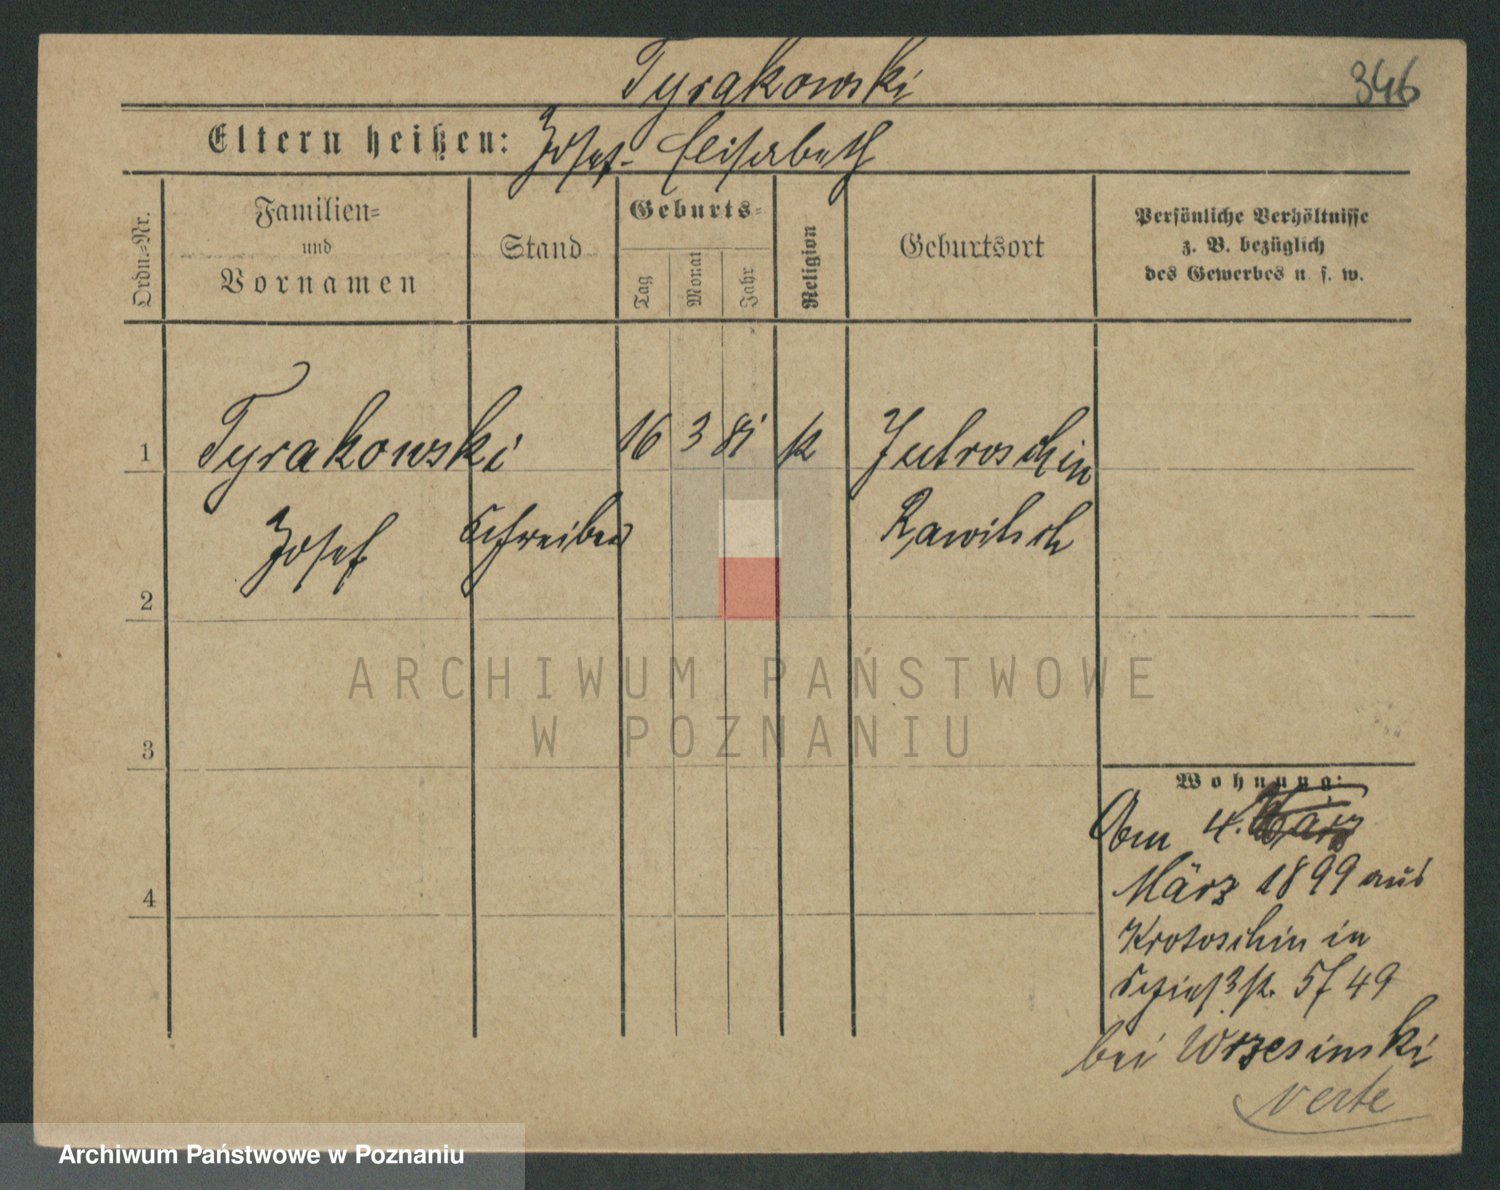 Tyrakowski
346
Eltern heißen: Josef - Elisabeth
Ordn.=Nr.
Familien=
und
Vornamen
Stand
Geburts=
Tag
Monat
Jahr
Religion
Geburtsort
Persönliche Verhältnisse
z. B. bezüglich
des Gewerbes u. s. w.
1 Tyrakowski 16 3 81 k Jutroschin
Josef Schreiber Rawitsch
2
ARCHIWUM PAŃSTWOWE
W POZNANIU
3
Wohnung:
Am 4. März
März 1899 aus
4
Krotoschin in
49
bei Wrzesinski
verte
Archiwum Państwowe w Poznaniu